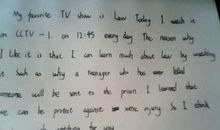 My favorite TV show is Law Today I watch is
on CCTV-1 on 12:45 every day The reason why
I like it is that I can learn much about law by watching
it such as why a manager who has ever killed
someone will be sent to the prison. I learned that
we can be protect against some injury. So I think
watching for you